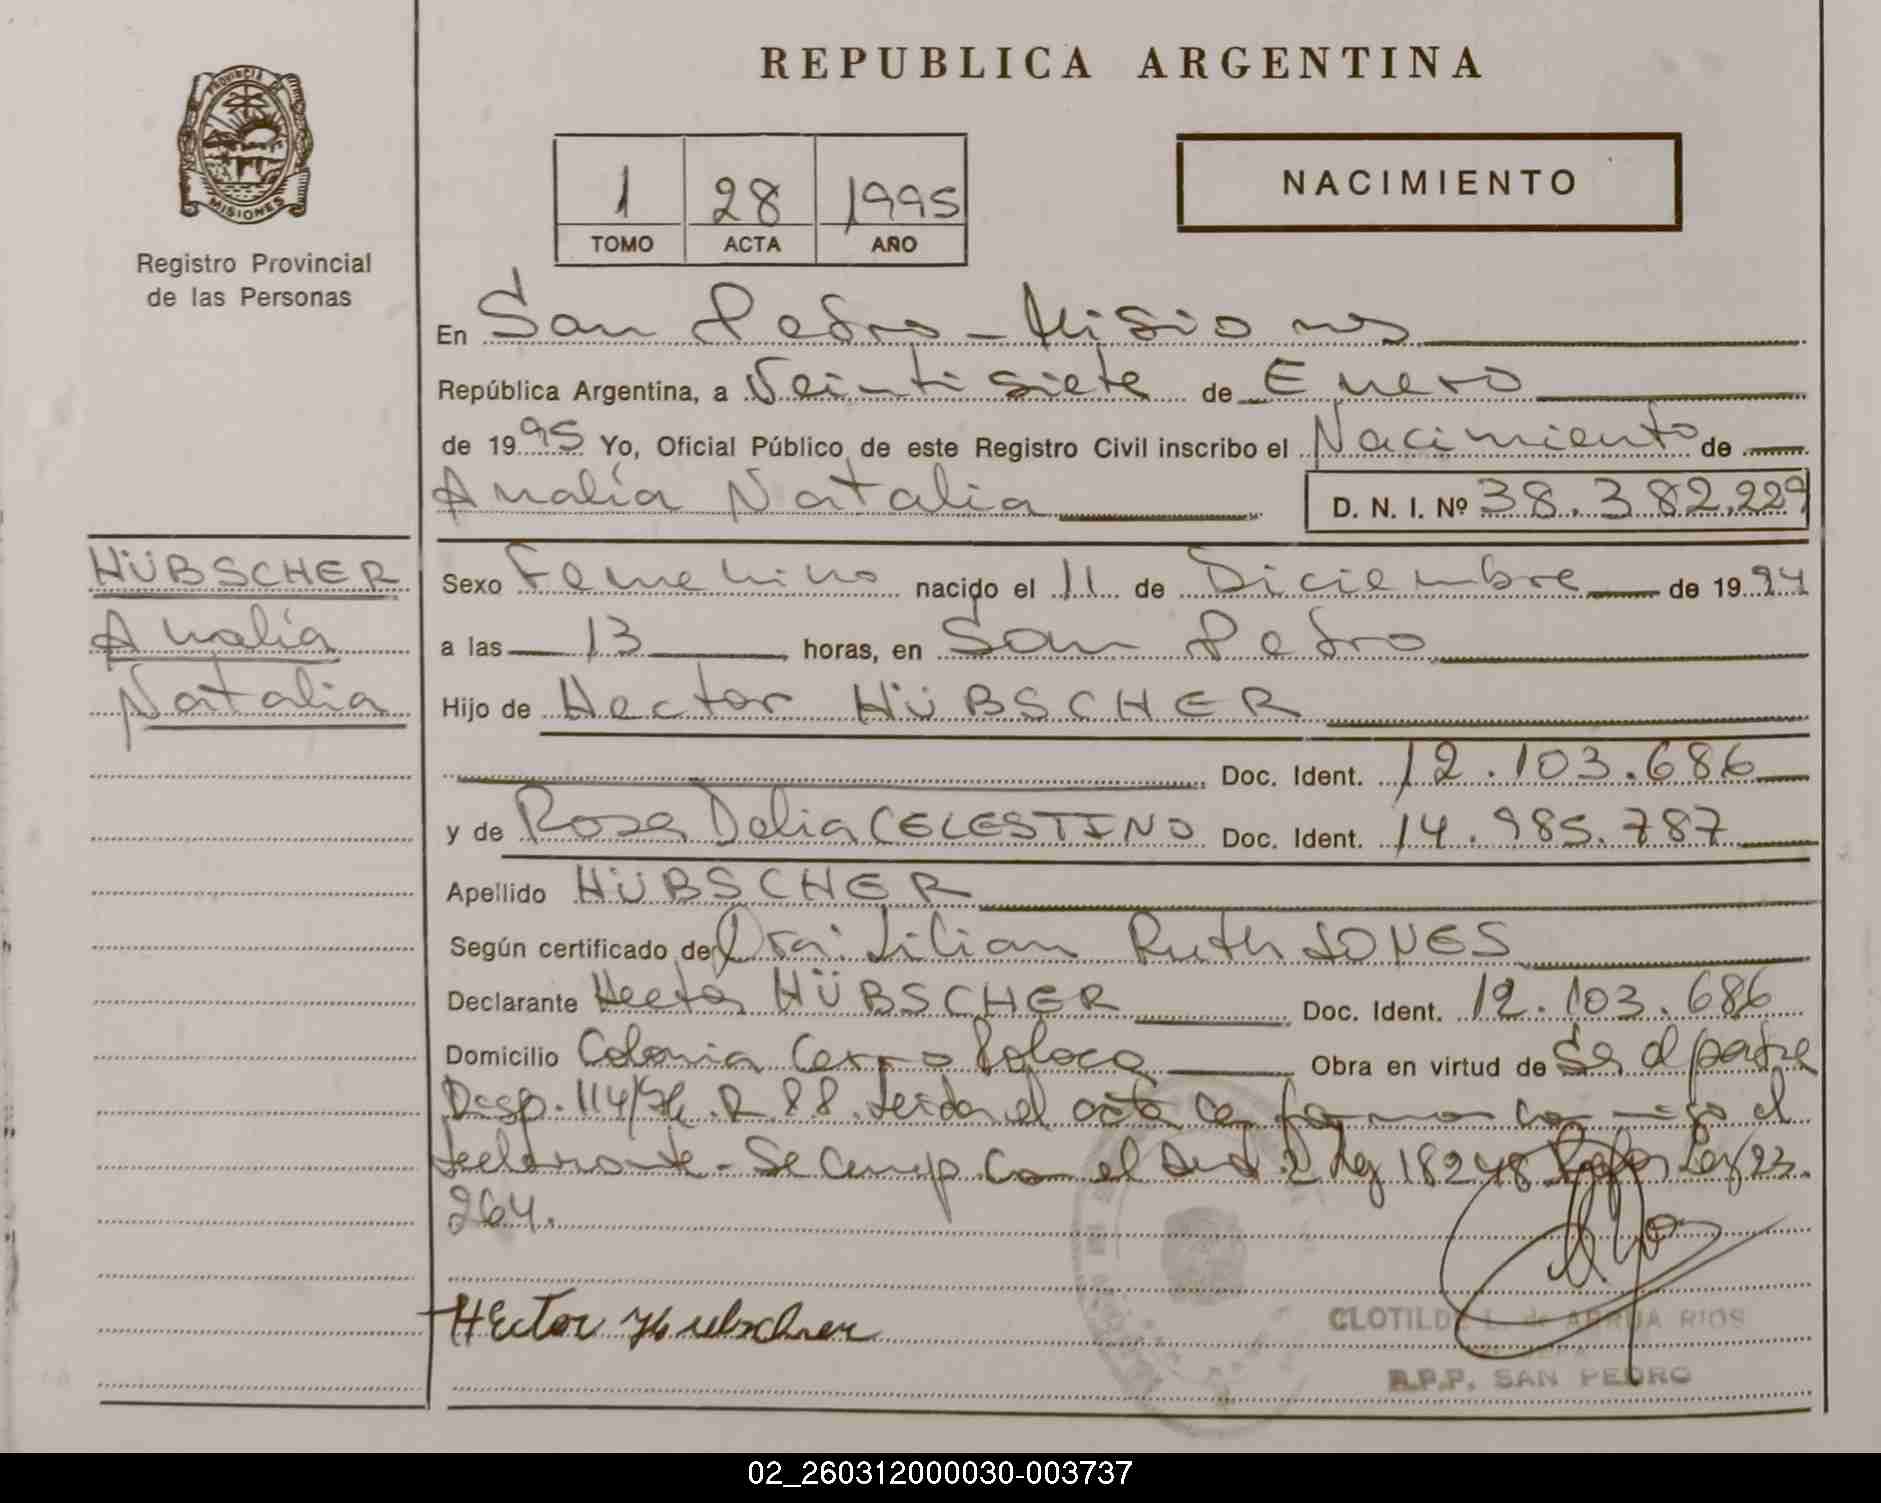 REPUBLICA ARGENTINA
PROVINCIA DE
MISIONES
Registro Provincial
de las Personas
1 28 1995
TOMO ACTA AÑO
NACIMIENTO
En San Pedro - Misiones
República Argentina, a Veintisiete de Enero
de 1995 Yo, Oficial Público de este Registro Civil inscribo el Nacimiento de
Analía Natalia D. N. I. Nº 38.382.229
HÜBSCHER
Analía
Natalia
Sexo Femenino nacido el 11 de Diciembre de 1994
a las 13 horas, en San Pedro
Hijo de Hector HÜBSCHER
Doc. Ident. 12.103.686
y de Rosa Delia CELESTINO Doc. Ident. 14.985.787
Apellido HÜBSCHER
Según certificado de Dra. Lilian Ruth JONES
Declarante Hector HÜBSCHER Doc. Ident. 12.103.686
Domicilio Colonia Cerro Obra en virtud de Ser el padre
Disp. 114/ R 88. Leida el acta conmigo el
declarante - Se cump. con el 2 Ley 18248 Ley 23.
264.
Hector Hubscher
CLOTILDE L. de RIOS
R.P.P. SAN PEDRO
02_260312000030-003737